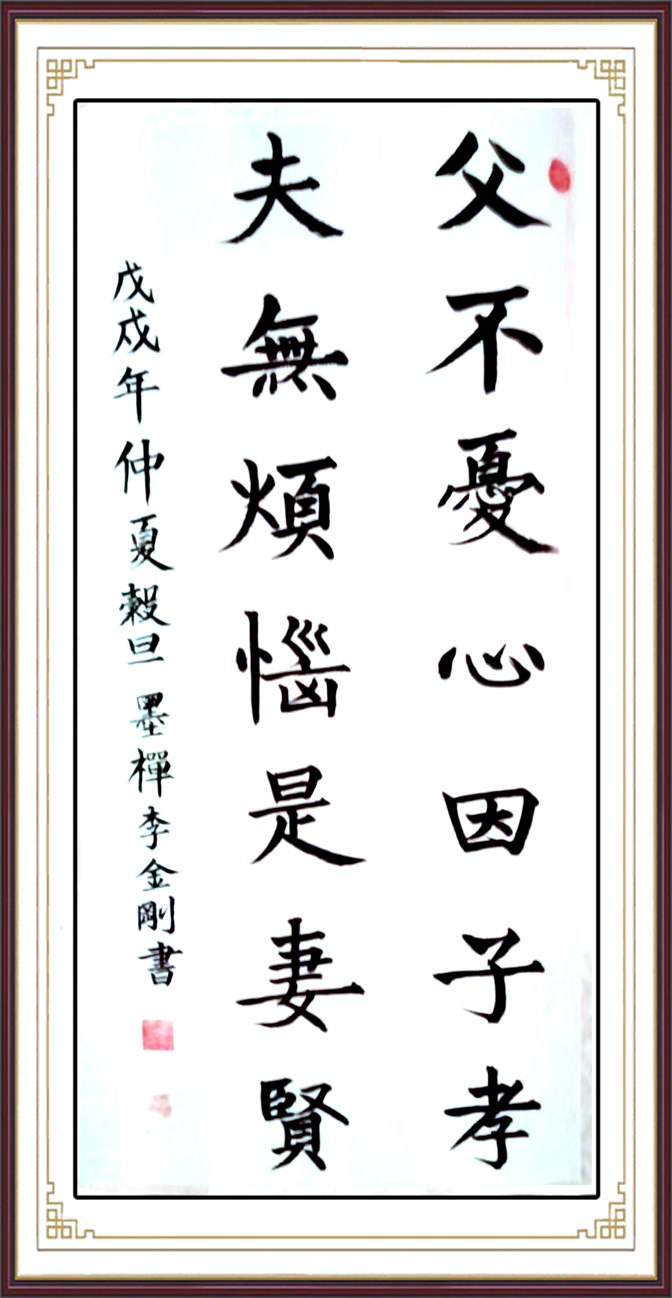 父不憂心因子孝
夫無煩惱是妻賢
戊戌年仲夏穀旦 墨禪李金剛書